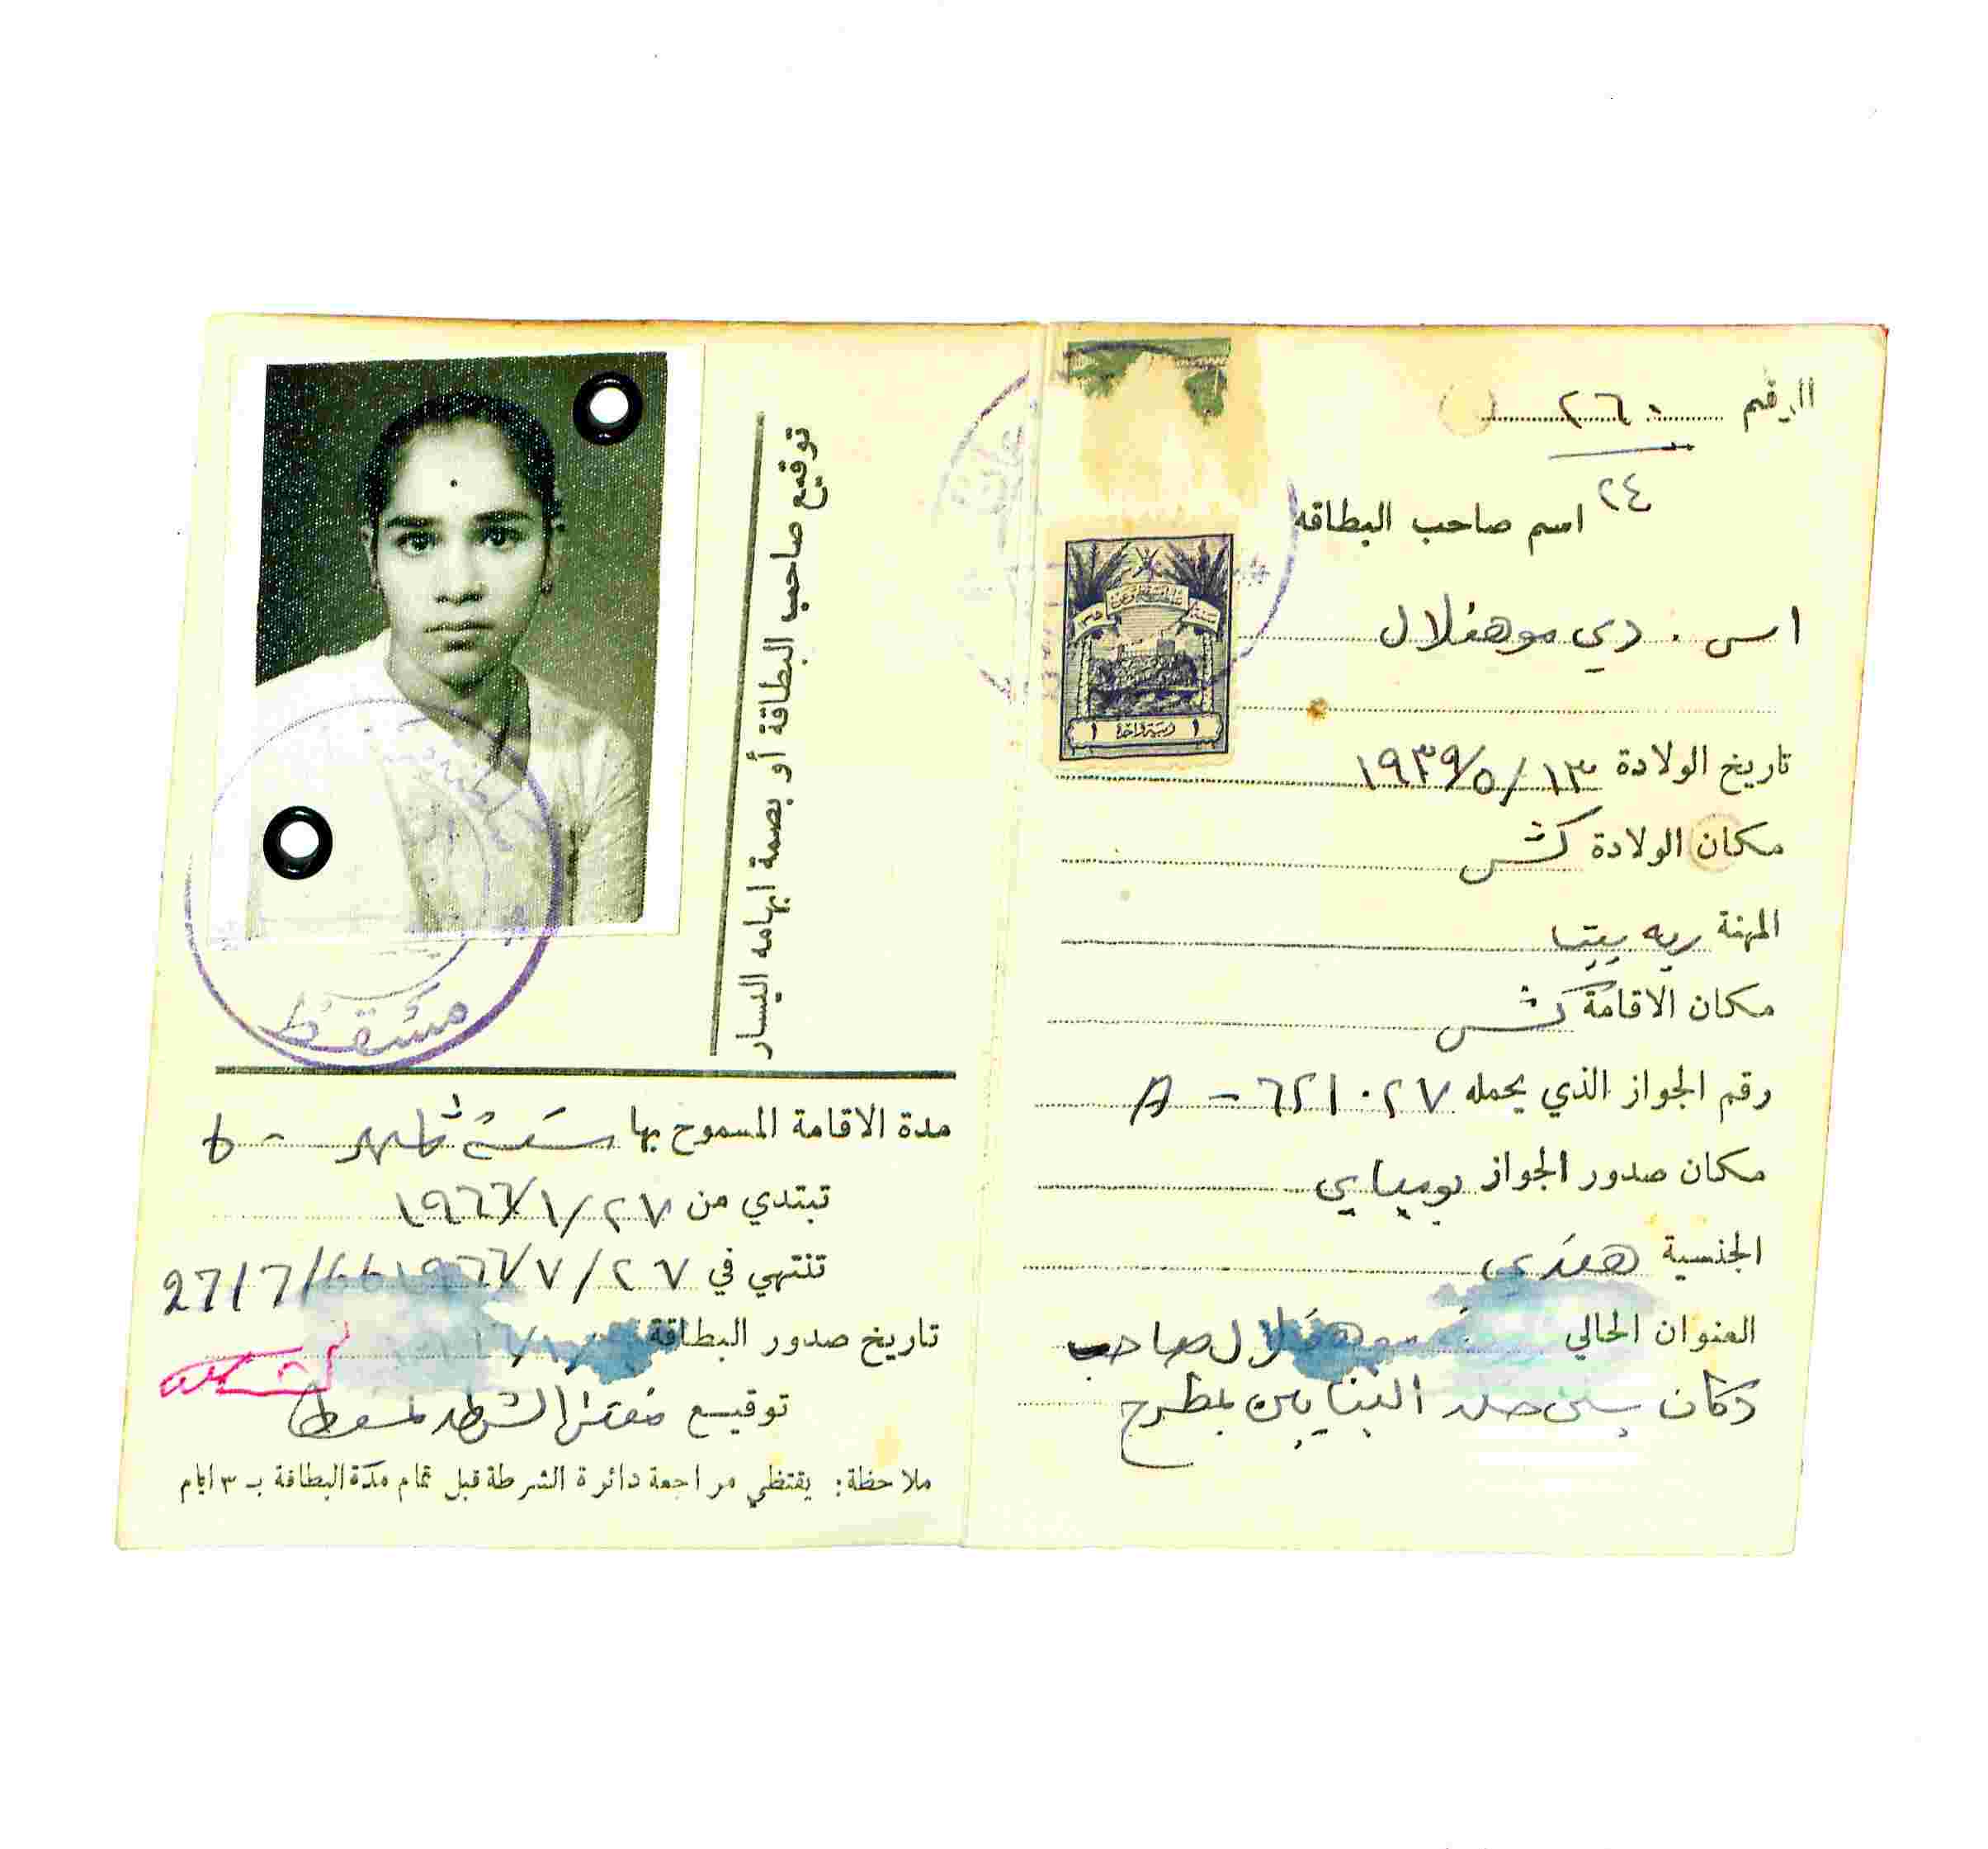 الرقم ٢٦٠
٢٤
اسم صاحب البطاقه
اس . دي موهنلال
١ ربية واحدة ١
تاريخ الولادة ١٣/٥/١٩٣٩
مكان الولادة كش
المهنة ربه بيت
مكان الاقامة كش
رقم الجواز الذي يحمله A - ٦٢١٠٢٧
مكان صدور الجواز بومباي
الجنسية هندي
العنوان الحالي موهنلال صاحب
دكان البنايين بمطرح
توقيع صاحب البطاقة أو بصمة ابهامه اليسار
مسقط
مدة الاقامة المسموح بها ستة اشهر - ٦
تبتدي من ٢٧/١/١٩٦٦
تنتهي في ٢٧/٧/١٩٦٦ 27/7/66
تاريخ صدور البطاقة
توقيع مفتش الشرطة بمسقط
ملاحظة: يقتظي مراجعة دائرة الشرطة قبل تمام مدة البطاقة بـ ٣ ايام